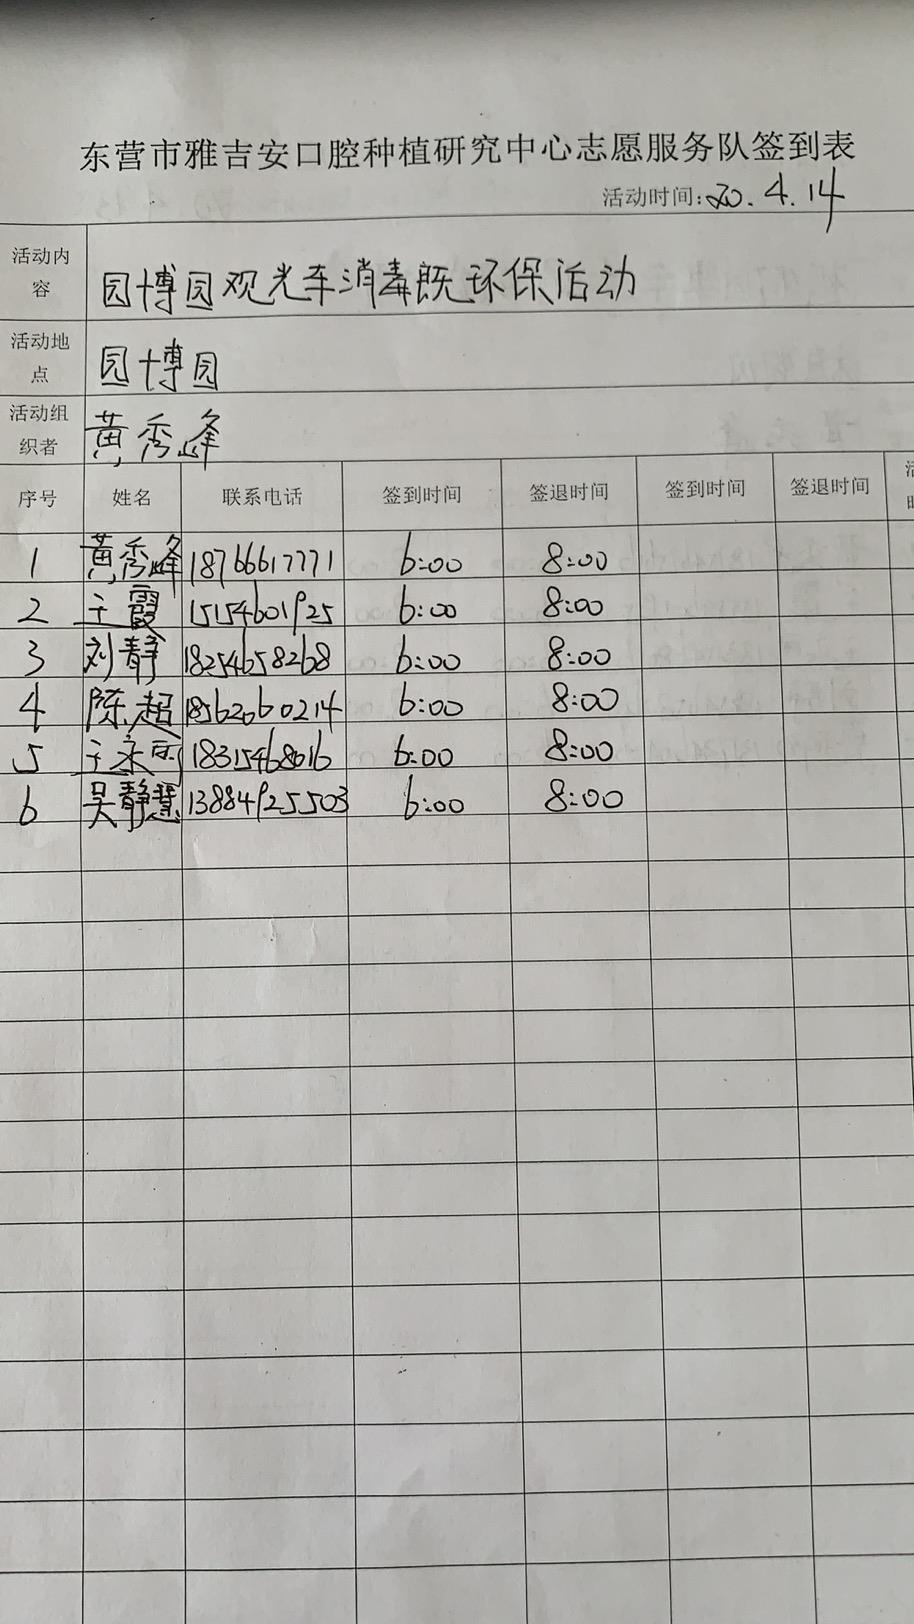 东营市雅吉安口腔种植研究中心志愿服务队签到表
活动时间:20.4.14
活动内容 园博园观光车消毒既环保活动
活动地点 园博园
活动组织者 黄秀峰
序号 姓名 联系电话 签到时间 签退时间 签到时间 签退时间
1 黄秀峰 18766617771 6:00 8:00
2 王霞 15154601925 6:00 8:00
3 刘静 18254658268 6:00 8:00
4 陈超 18562060214 6:00 8:00
5 王永 18315468016 6:00 8:00
6 吴静慧 13884925503 6:00 8:00